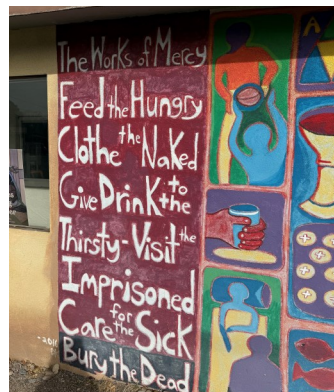 The Works of Mercy
Feed the Hungry
Clothe the Naked
Give Drink to the
Thirsty - Visit the
Imprisoned
Care for the Sick
Bury the Dead
A